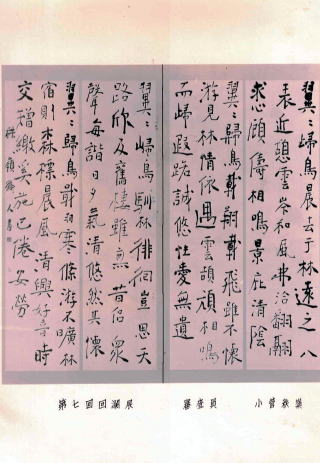 翼〻歸鳥晨去于林遠之八
表近憩雲岑和風弗洽翻翮
求心顧儔相鳴景庇清陰
翼〻歸鳥載翔載飛雖不懷
游見林情依遇雲頡頏相鳴
而歸遐路誠悠性愛無遺
翼〻歸鳥馴林徘徊豈思天
路欣及舊棲雖無昔侶衆
聲每諧日夕氣清悠然其懷
翼〻歸鳥戢羽寒條游不曠林
宿則森標晨風清興好音時
交矰繳奚施已倦安勞
第七回回瀾展 審査員 小菅秩嶺